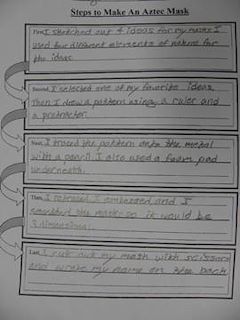 Steps to Make An Aztec Mask
First, I sketched out 4 ideas for my mask. I
used four different elements of nature for
the ideas.
Second, I selected one of my favorite ideas.
Then I drew a pattern using a ruler and
a protractor.
Next, I traced the pattern onto the metal
with a pencil. I also used a foam pad
underneath.
Then, I retraced, I embossed and I
the mask so it would be
3 dimensional.
Last, I cut out my mask with scissors
and wrote my name on the back